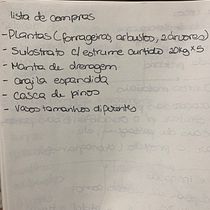 lista de compras
- Plantas (forrageiras, arbustos, 2 árvores)
- Substrato c/ estrume curtido 20kg x 5
- Manta de drenagem
- argila expandida
- casca de pinos
- vasos tamanhos diferentes